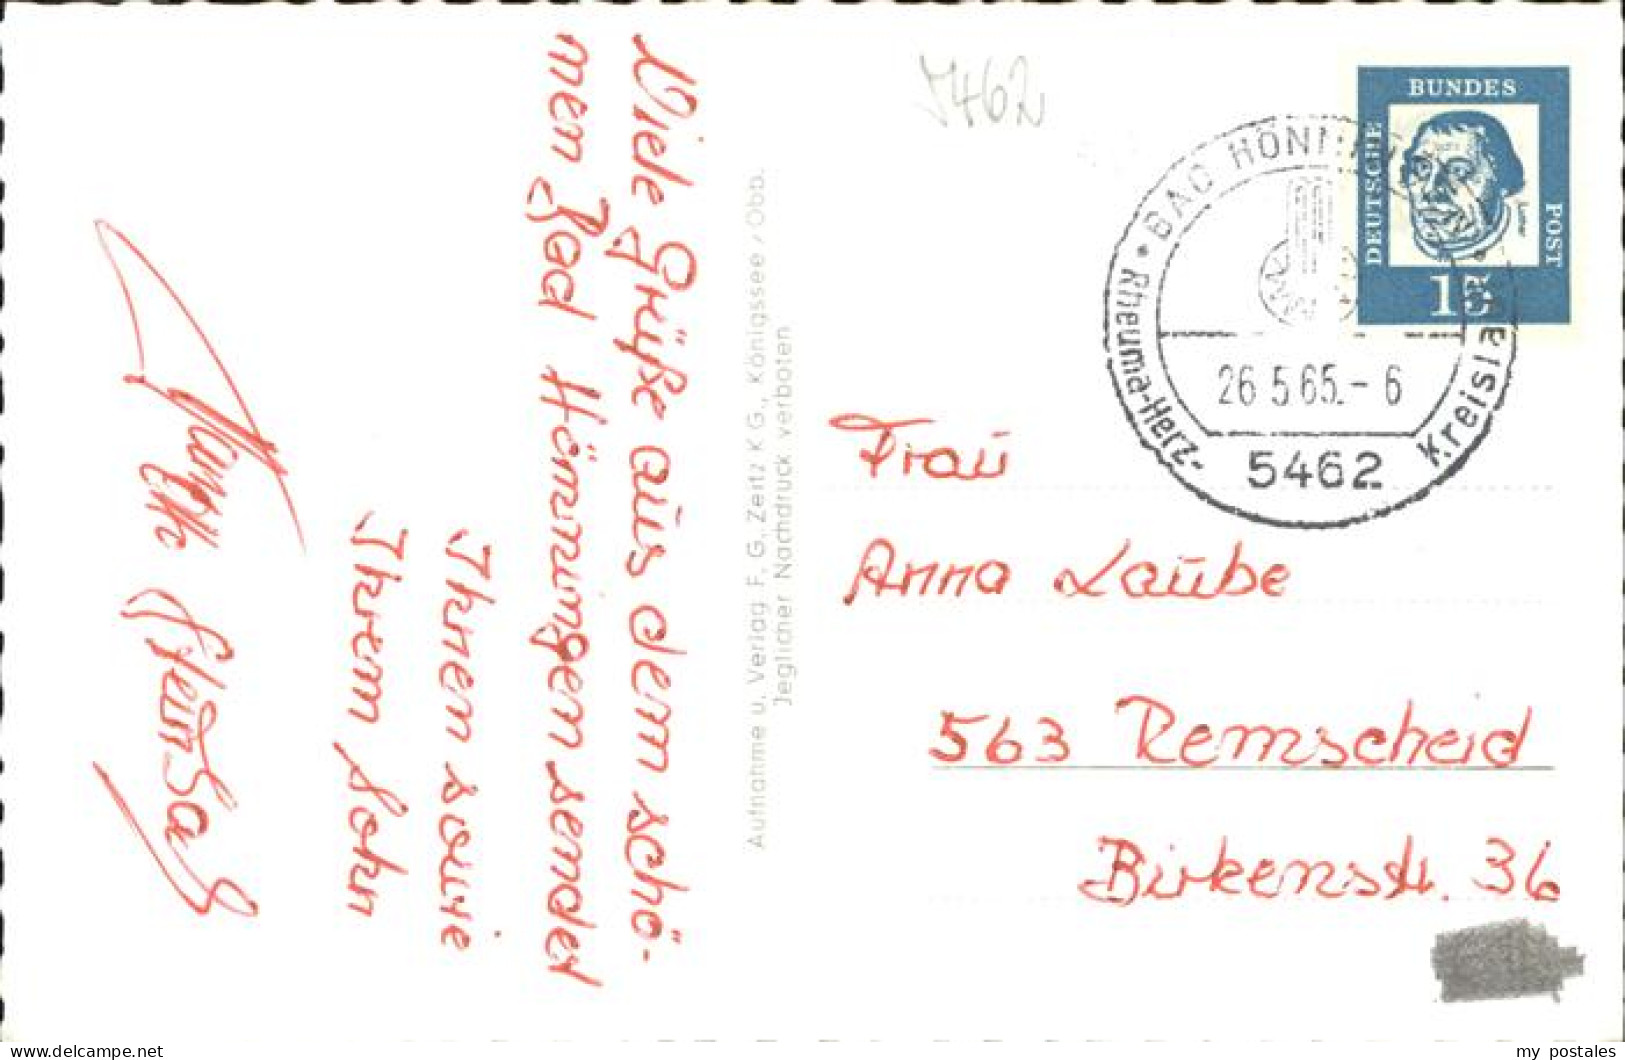 Viele Grüße aus dem schö-
nen Bad Hönningen sendet
Ihnen sowie
Ihrem Sohn
Aufnahme u. Verlag F. G. Zeitz KG., Königssee / Obb.
Jeglicher Nachdruck verboten
5462
DEUTSCHE BUNDES POST
Luther
15
BAD HÖNNINGEN
Rheuma-Herz-Kreislauf
26.5.65.-6
5462
Frau
Anna Laube
563 Remscheid
Birkenstr. 36
my postales